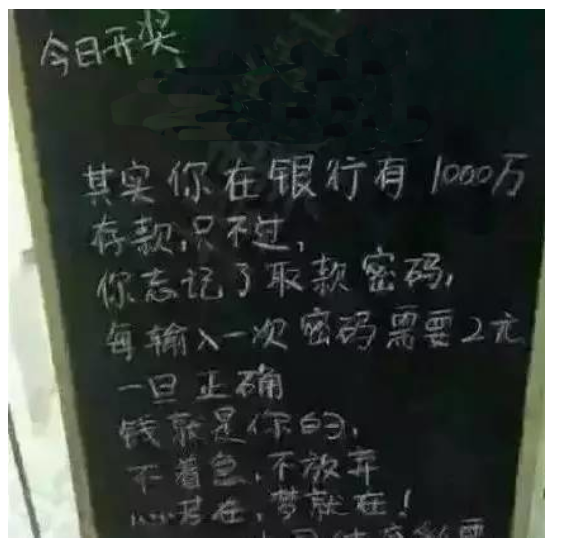 今日开奖
其实你在银行有1000万
存款,只不过,
你忘记了取款密码,
每输入一次密码需要2元
一旦正确
钱就是你的,
不着急,不放弃
心若在,梦就在!